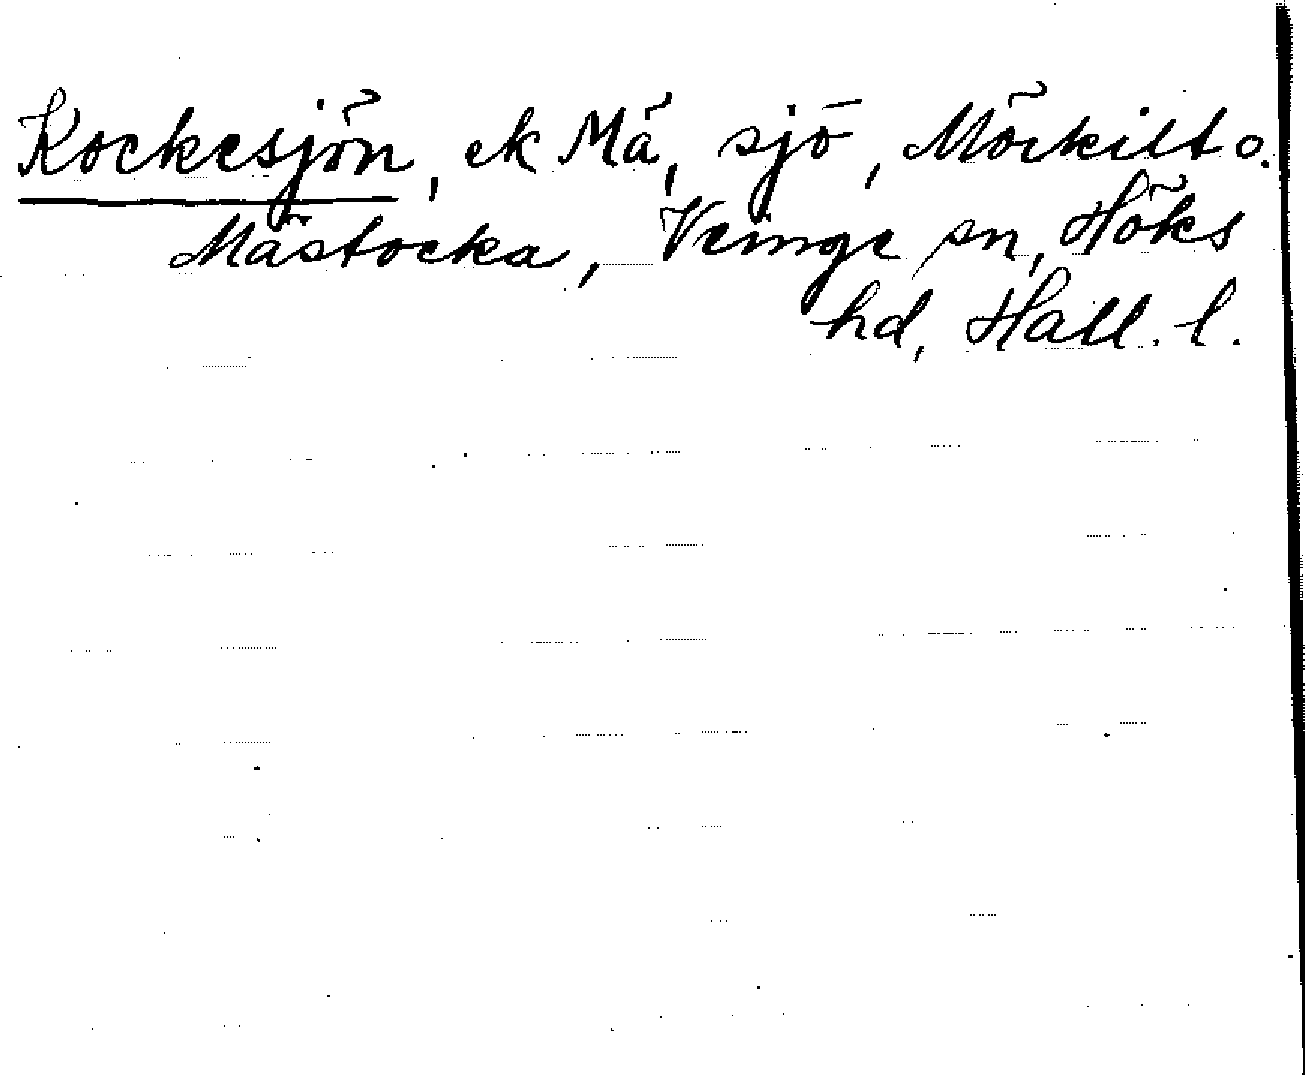 Kockesjön, ek Må, sjö, Mörkilt o.
Mästocka, Veinge sn, Höks
hd, Hall. l.